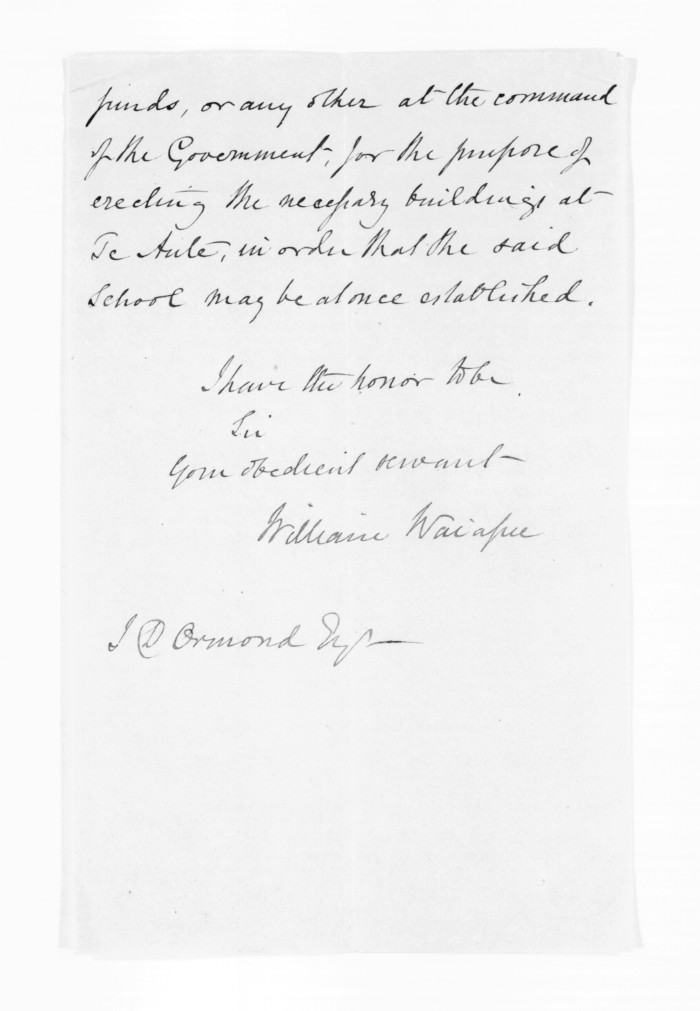 funds, or any other at the command
of the Government, for the purpose of
erecting the necessary buildings at
Te Aute, in order that the said
School may be at once established.
I have the honor to be
Sir
Your obedient servant
William Waiapu
J D Ormond Esqr